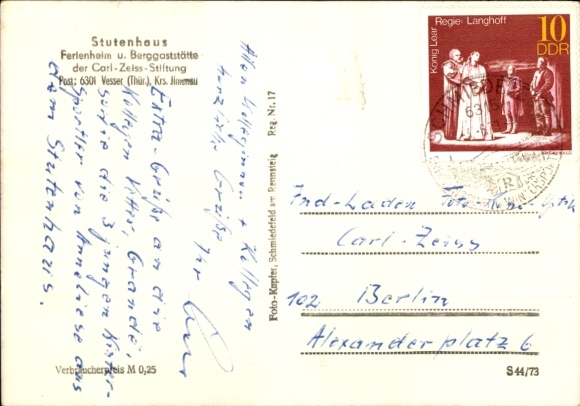 Stutenhaus
Ferienheim u. Berggaststätte
der Carl-Zeiss-Stiftung
Post: 6301 Vesser (Thür.), Krs. Jlmenau
Allen Kolleginnen + Kollegen
herzliche Grüße
Extra-Grüße an die
Kollegen Ritter, Grande,
sowie die 3 jungen
Spötter von Anneliese aus
dem Stutenhaus.
Verbraucherpreis M 0,25
Foto-Kapfer, Schmiedefeld am Rennsteig Reg. Nr. 17
König Lear Regie: Langhoff
10
DDR
Carl-Zeiss
102 Berlin
Alexanderplatz 6
S 44/73